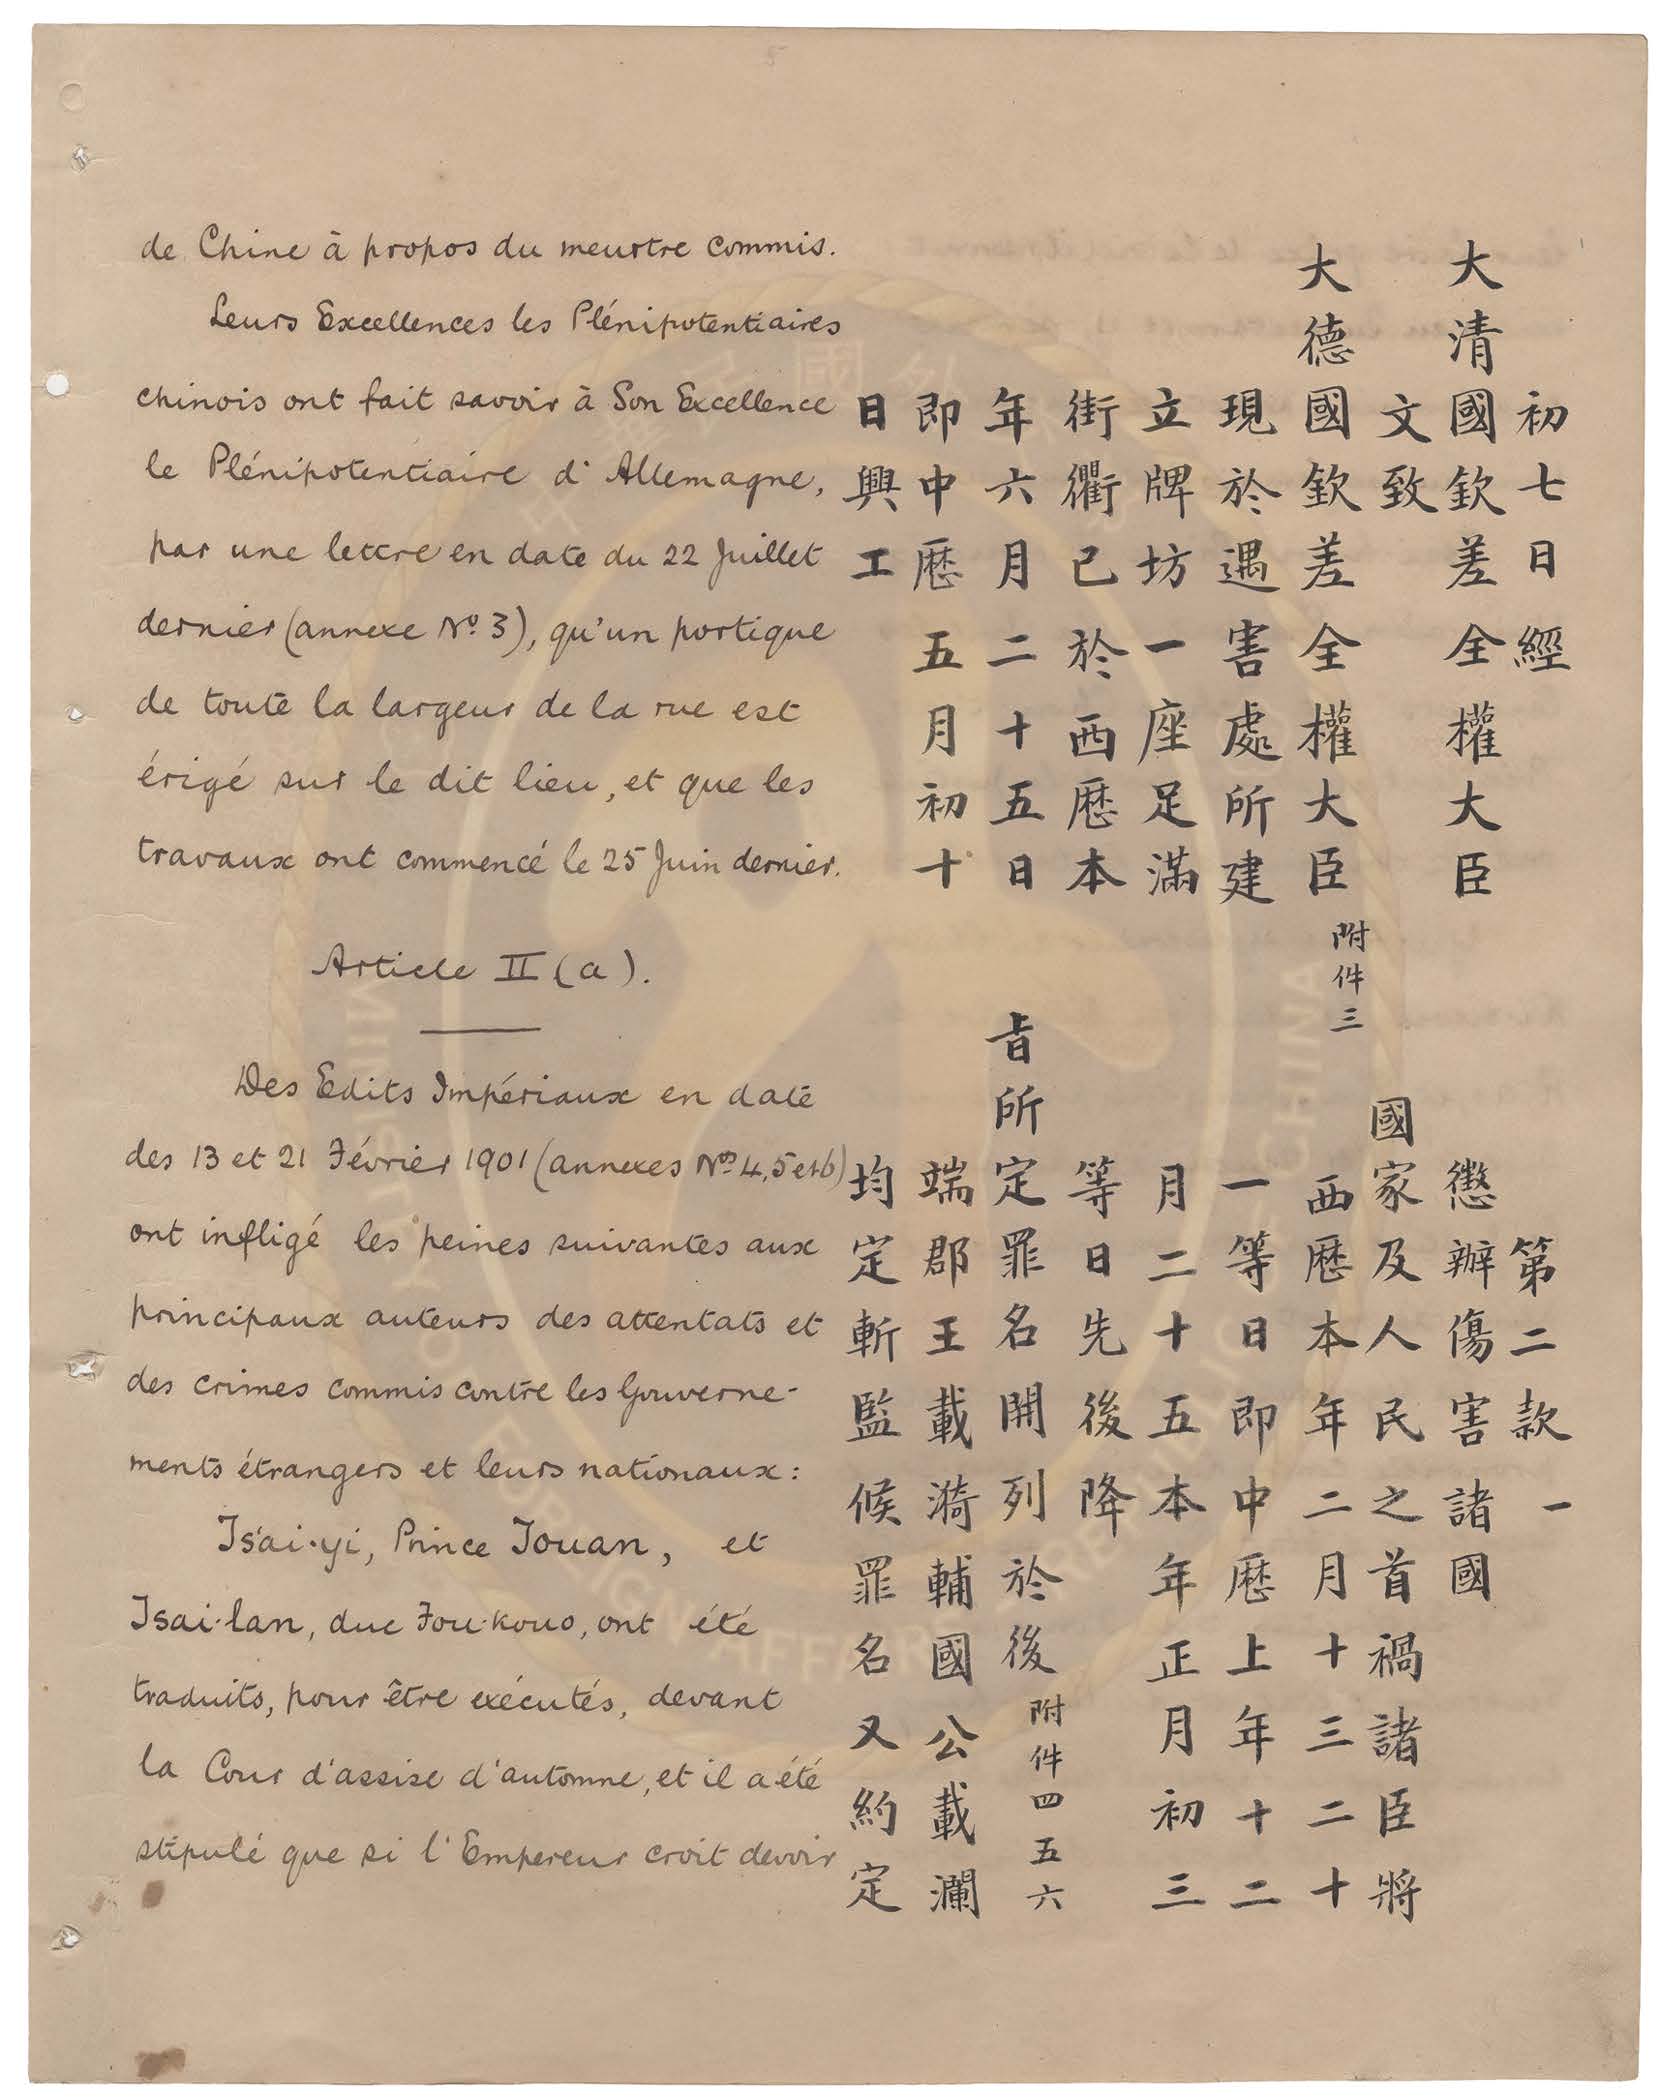 de Chine à propos du meurtre commis.
Leurs Excellences les Plénipotentiaires
chinois ont fait savoir à Son Excellence
le Plénipotentiaire d'Allemagne,
par une lettre en date du 22 Juillet
dernier (annexe Nº 3), qu'un portique
de toute la largeur de la rue est
érigé sur le dit lieu, et que les
travaux ont commencé le 25 Juin dernier.
Article II (a).
Des Edits Impériaux en date
des 13 et 21 Février 1901 (annexes Nos 4, 5 et 6)
ont infligé les peines suivantes aux
principaux auteurs des attentats et
des crimes commis contre les Gouverne-
ments étrangers et leurs nationaux:
Tsai-yi, Prince Touan, et
Tsai-lan, duc Fou-kouo, ont été
traduits, pour être exécutés, devant
la Cour d'assise d'automne, et il a été
stipulé que si l'Empereur croit devoir
初七日經
大清國欽差全權大臣
文致
大德國欽差全權大臣附件三
現於遇害處所建
立牌坊一座足滿
街衢已於西歷本
年六月二十五日
即中歷五月初十
日興工
第二款一
懲辦傷害諸國
國家及人民之首禍諸臣將
西歷本年二月十三二十
一等日即中歷上年十二
月二十五本年正月初三
等日先後降
旨所定罪名開列於後附件四五六
端郡王載漪輔國公載瀾
均定斬監候罪名又約定